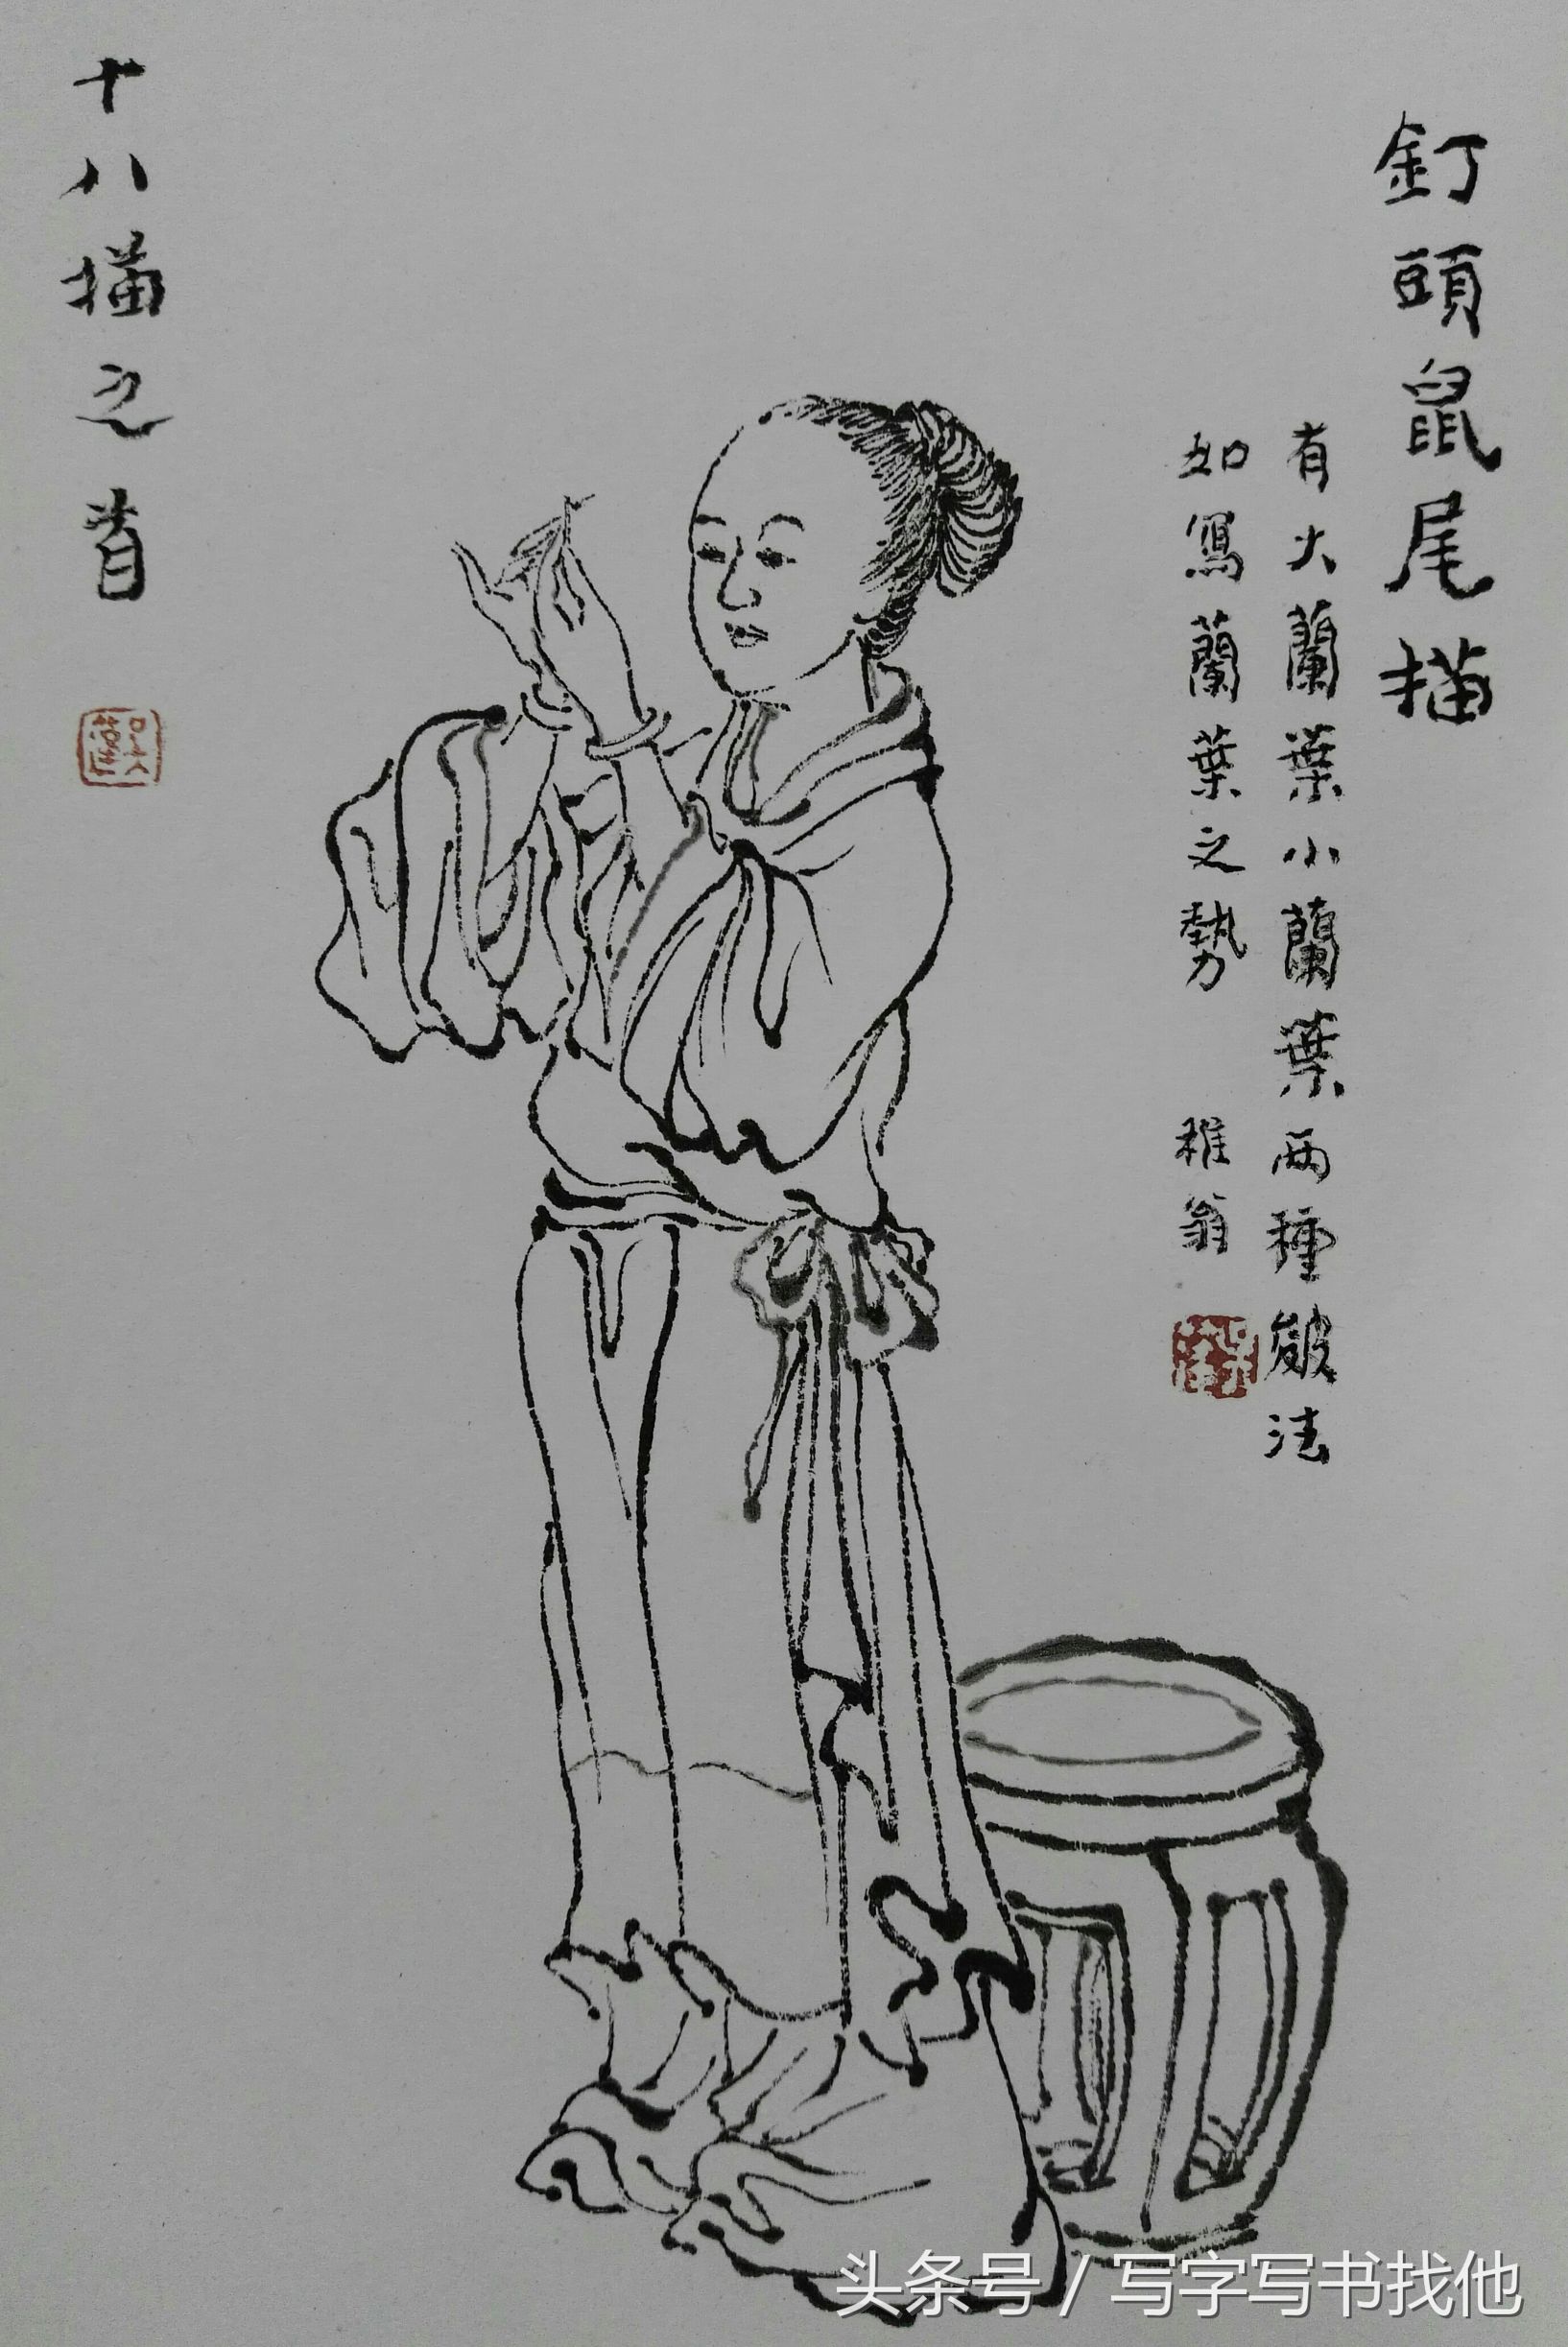 釘頭鼠尾描
有大蘭葉小蘭葉兩種皴法
如寫蘭葉之勢 稚翁
十八描之首
头条号 / 写字写书找他